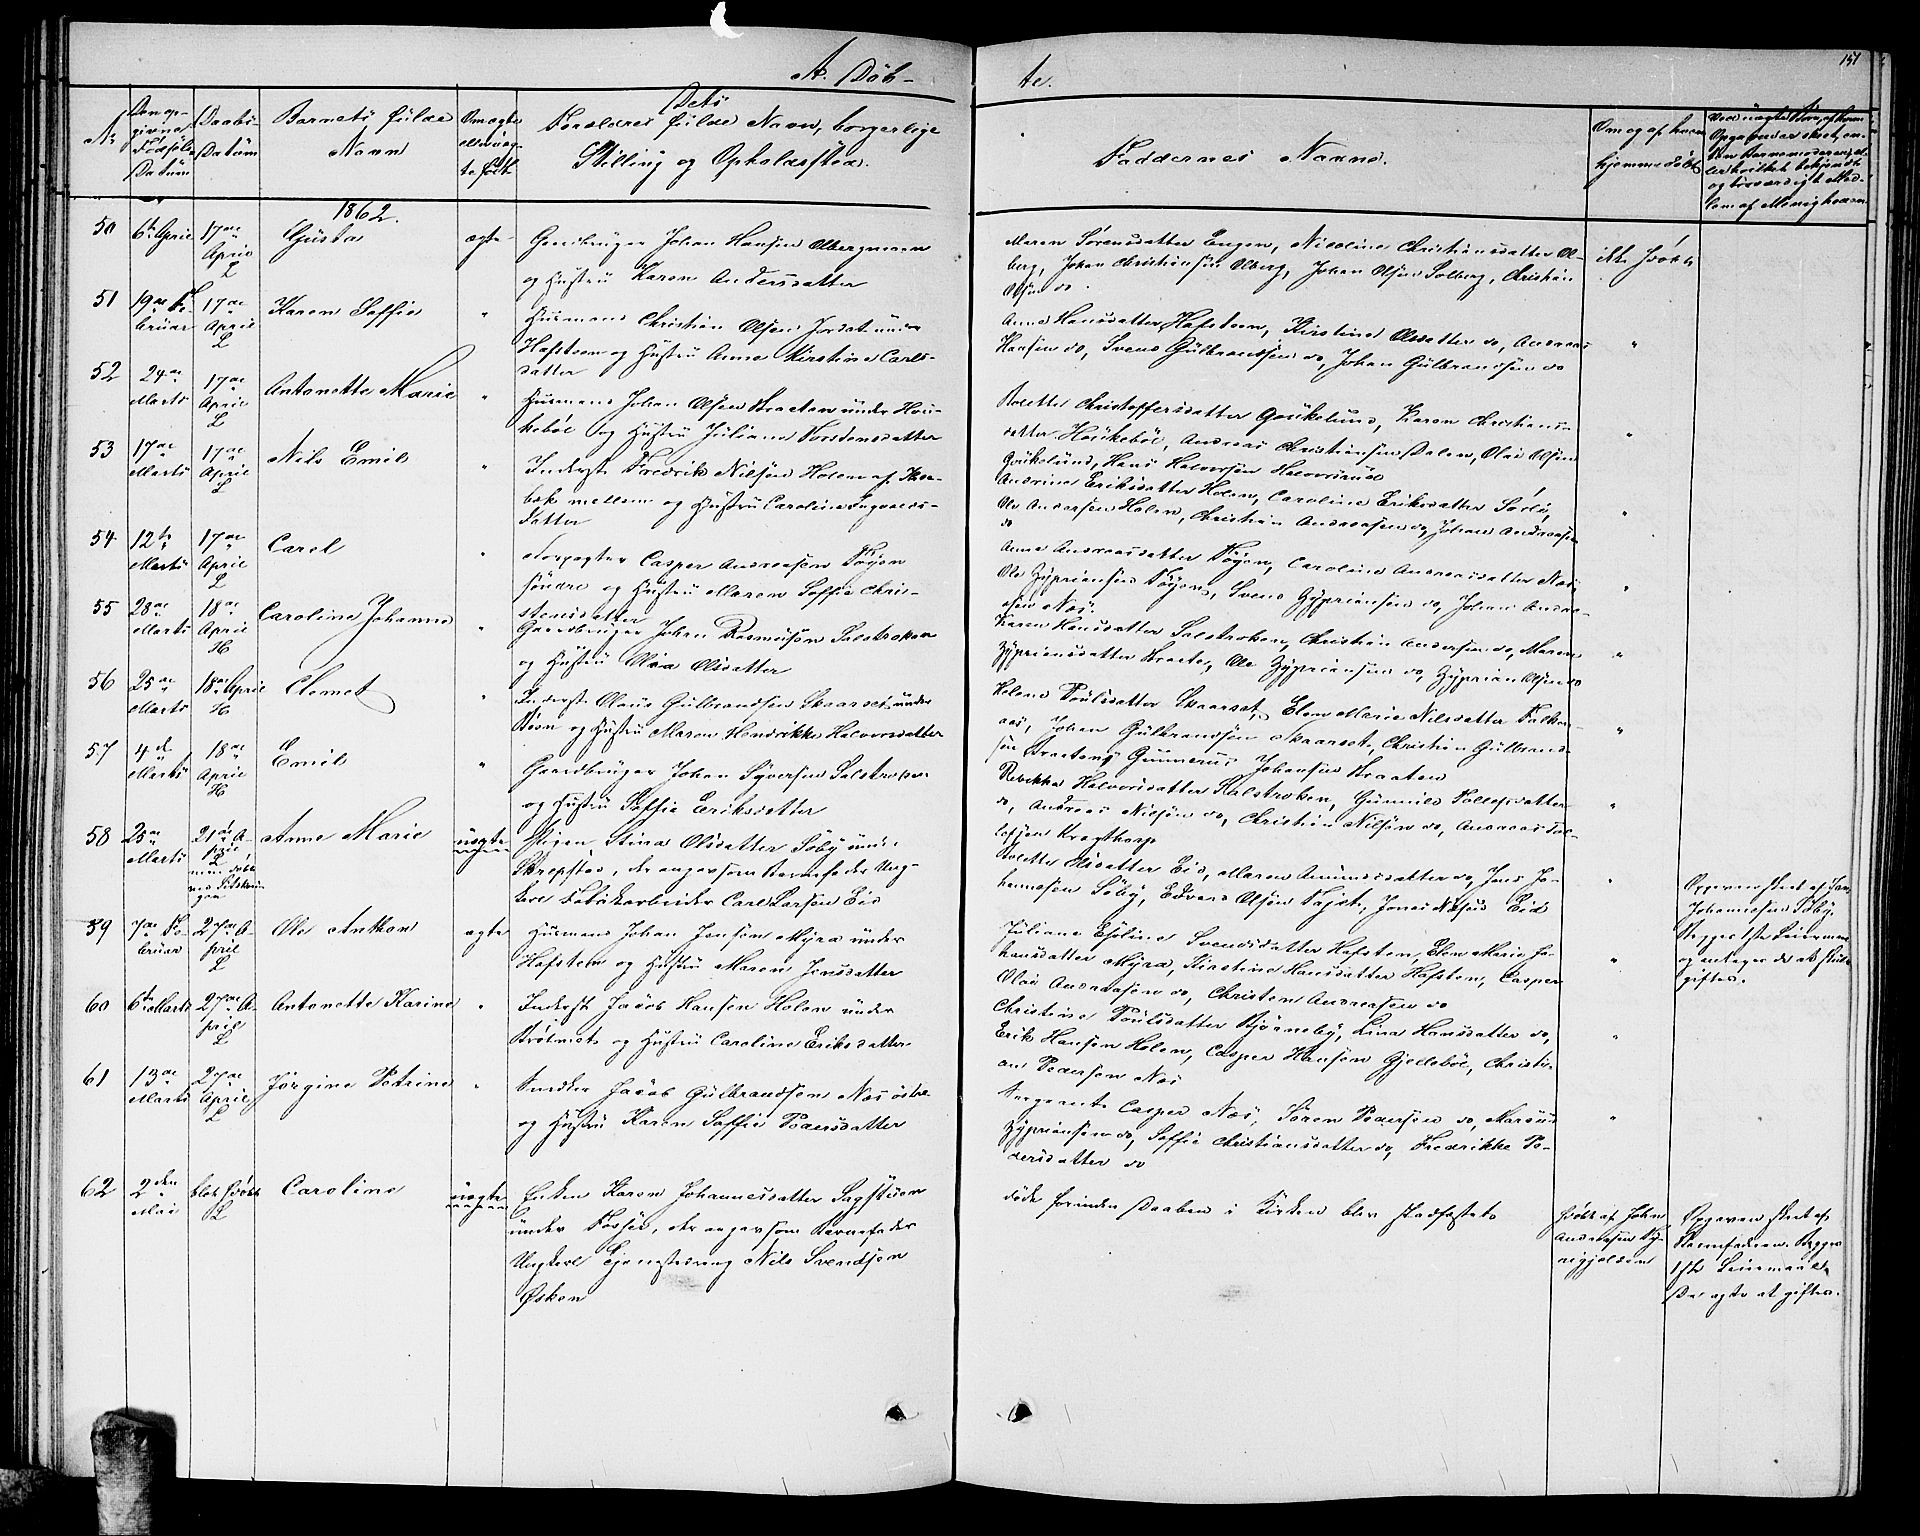 A. Döb-
te.
151
No
Den op-
givne
Fødsels
Datum
Daabs-
Datum
Barnets fulde
Navn
Om ægte
eller uæg-
te født
Dets
Forældres fulde Navn, borgerlige
Stilling og Opholdssted.
Faddernes Navne.
Om og af hvem
hjemmedøbt
1862.
50 6te April 17de April L Gusta ægte Gaardbruger Johan Hansen Olbergmoen
og Hustru Karen Andersdatter
Maren Sörensdatter Engen, Nicoline Christiansdatter Ol-
berg, Johan Christiansen Olberg, Johan Olsen Solberg, Christian
Olsen do
ikke hjdøbt
51 19de Februar 17de April L Karen Soffie " Husmand Christian Olsen under
Hafsteen og Hustru Anne Kirstine Carls-
datter
Anne Hansdatter Hafsteen, Kirstine Olsdatter do, Andreas
Hansen do, Svend Gulbrandsen do, Johan Gulbrandsen do
"
52 24de Marts 17de April L Antonette Marie " Husmand Johan Olsen Braaten under Hou-
kebøl og Hustru Juliane Torstensdatter
Bolette Christoffersdatter Goukelund, Karen Christians-
datter Houkebøl, Andreas Christiansen Dalen, Olai Olsen
Goukelund, Hans Halvorsen Halvorsrud
"
53 17de Marts 17de April L Nils Emil " Inderst Fredrik Nilsen Holen af
mellem og Hustru Caroline Ingvalds-
datter
Andrine Eriksdatter Holen, Caroline Eriksdatter
Ole Andersen Holen, Christian Andreasen do, Johan Andreasen
do
"
54 12te Marts 17de April L Carl " Forpagter Casper Andreasen Töyen
söndre og Hustru Maren Soffie Chri-
stensdatter
Anne Andreasdatter Töyen, Caroline Andreasdatter Næs,
Ole Zypriansen Töyen, Svend Zypriansen do, Johan Andre-
asen Næs.
"
55 28de Marts 18de April H Caroline Johanne " Gaardbruger Johan Rasmussen Salstroken
og Hustru Olea Olsdatter
Karen Hansdatter Salstroken, Christian Andersen do, Maren
Zypriansdatter Braate, Ole Zypriansen do, Zyprian Olsen do
"
56 25de Marts 18de April H Clemet " Inderst Olaus Gulbrandsen Skaaret under
og Hustru Maren Hendrikke Halvorsdatter
Helene Poulsdatter Skaaret, Elen Marie Nilsdatter
Johan Gulbrandsen Skaaret, Christian Gulbrand-
sen Braaten, Gunnerus Johansen Braaten
"
57 4de Marts 18de April H Emil " Gaardbruger Johan Syversen Salstroken
og Hustru Soffie Eriksdatter
Rebekka Halvorsdatter Salstroken, Gunnild Tollefsdatter
do, Andreas Nilsen do, Christian Nilsen do, Andreas Tol-
lefsen Kragtorp
"
58 25de Marts 21de April Anne Marie uægte Pigen Stina Olsdatter Söby under
Skrepstad, der angav som Barnefader Ung-
karl Fabrikarbeider Carl Larsen Eid
Bolette Olsdatter Eid, Maren Amundsdatter do, Jens Jo-
hannesen Söby, Edvard Olsen Tajet, Eid
"
Opgaven skeet af Jens
Johannesen Söby.
Begges 1ste Leiermaal
og antages de at skulle
giftes.
59 7de Februar 27de April L Ole Anthon ægte Husmand Johan Jensen Myra under
Hafsteen og Hustru Maren Jensdatter
Juliane Eoline Svendsdatter Hafsten, Elen Marie Jo-
hansdatter Myra, Kirstine Hansdatter Hafsten, Casper
Olai Andreasen do, Christen Andreasen do
"
60 6te Marts 27de April L Antonette Karine " Inderst Jacob Hansen Holen under
Brötmet og Hustru Caroline Eriksdatter
Christine Poulsdatter Bjørneby, Lina Hansdatter do,
Erik Hansen Holen, Casper Hansen Gjellebøl, Christi-
an Pedersen Næs
"
61 13de Marts 27de April L Jörgine Petrine " Snedker Jacob Gulbrandsen Næs östre
og Hustru Karen Soffie Pedersdatter
Sergeant Casper Næs, Sören Pedersen do, Marius
Zypriansen do, Soffie Christiansdatter do, Fredrikke Pe-
dersdatter do
"
62 2den Mai blot hjdøbt L Caroline uægte Enken Karen Johannesdatter Sagstuen
under Fosser, der angav som Barnefader
Ungkarl Tjenestedreng Nils Svendsen
Østen
döde forinden Daaben i Kirken blev stadfæstet
hjdøbt af John
Andreasen
Opgaven skeet af
Barnefaderen. Begges
1ste Leiermaal.
De agte at giftes.